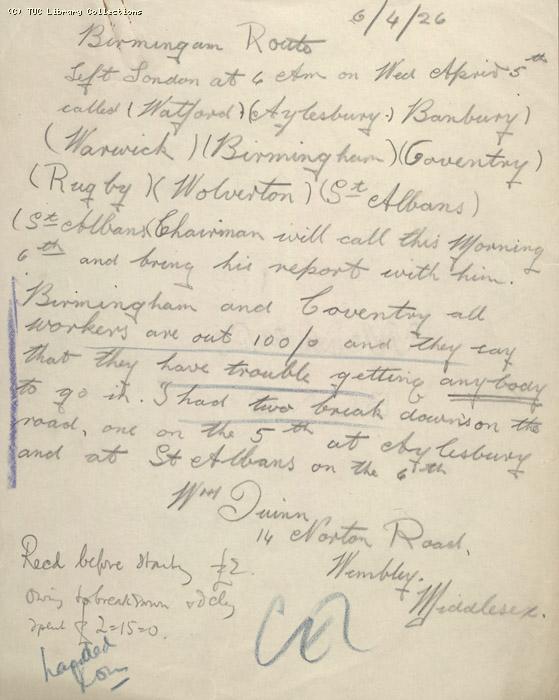 (C) TUC Library Collections
6/4/26
Birmingam Route
Left London at 6 Am on Wed April 5th
called (Watford) (Aylesbury.) Banbury)
(Warwick) (Birmingham) (Coventry)
(Rugby) (Wolverton) (St Albans)
(St Albans (Chairman will call this Morning
6th and bring his report with him.
Birmingham and Coventry all
workers are out 100/0 and they say
that they have trouble getting anybody
to go in. I had two break downs on the
road, one on the 5th at Aylesbury
and at St Albans on the 6th
Wm Quinn
14 Norton Road,
Wembley.
Middlesex.
Recd before starting £2.
Owing to breakdown & delay
spent £2=15=0.